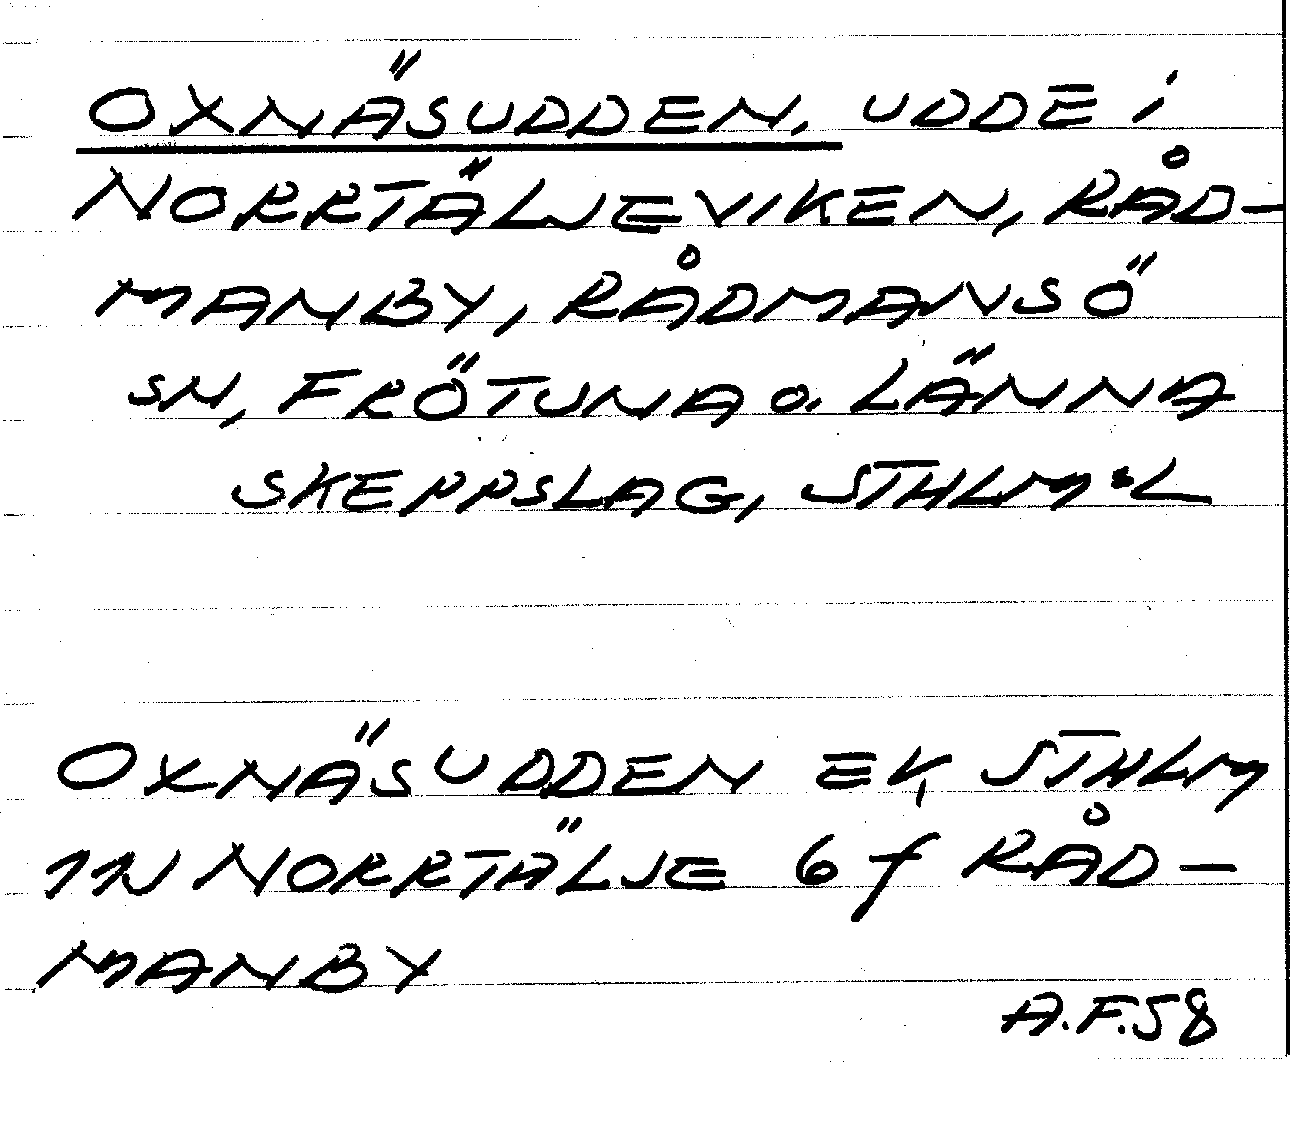 OXNÄSUDDEN, UDDE i
NORRTÄLJEVIKEN, RÅD-
MANBY, RÅDMANSÖ
SN, FRÖTUNA o. LÄNNA
SKEPPSLAG, STHLM:L
OXNÄSUDDEN EK, STHLM
11N NORRTÄLJE 6 f RÅD-
MANBY
A.F.58